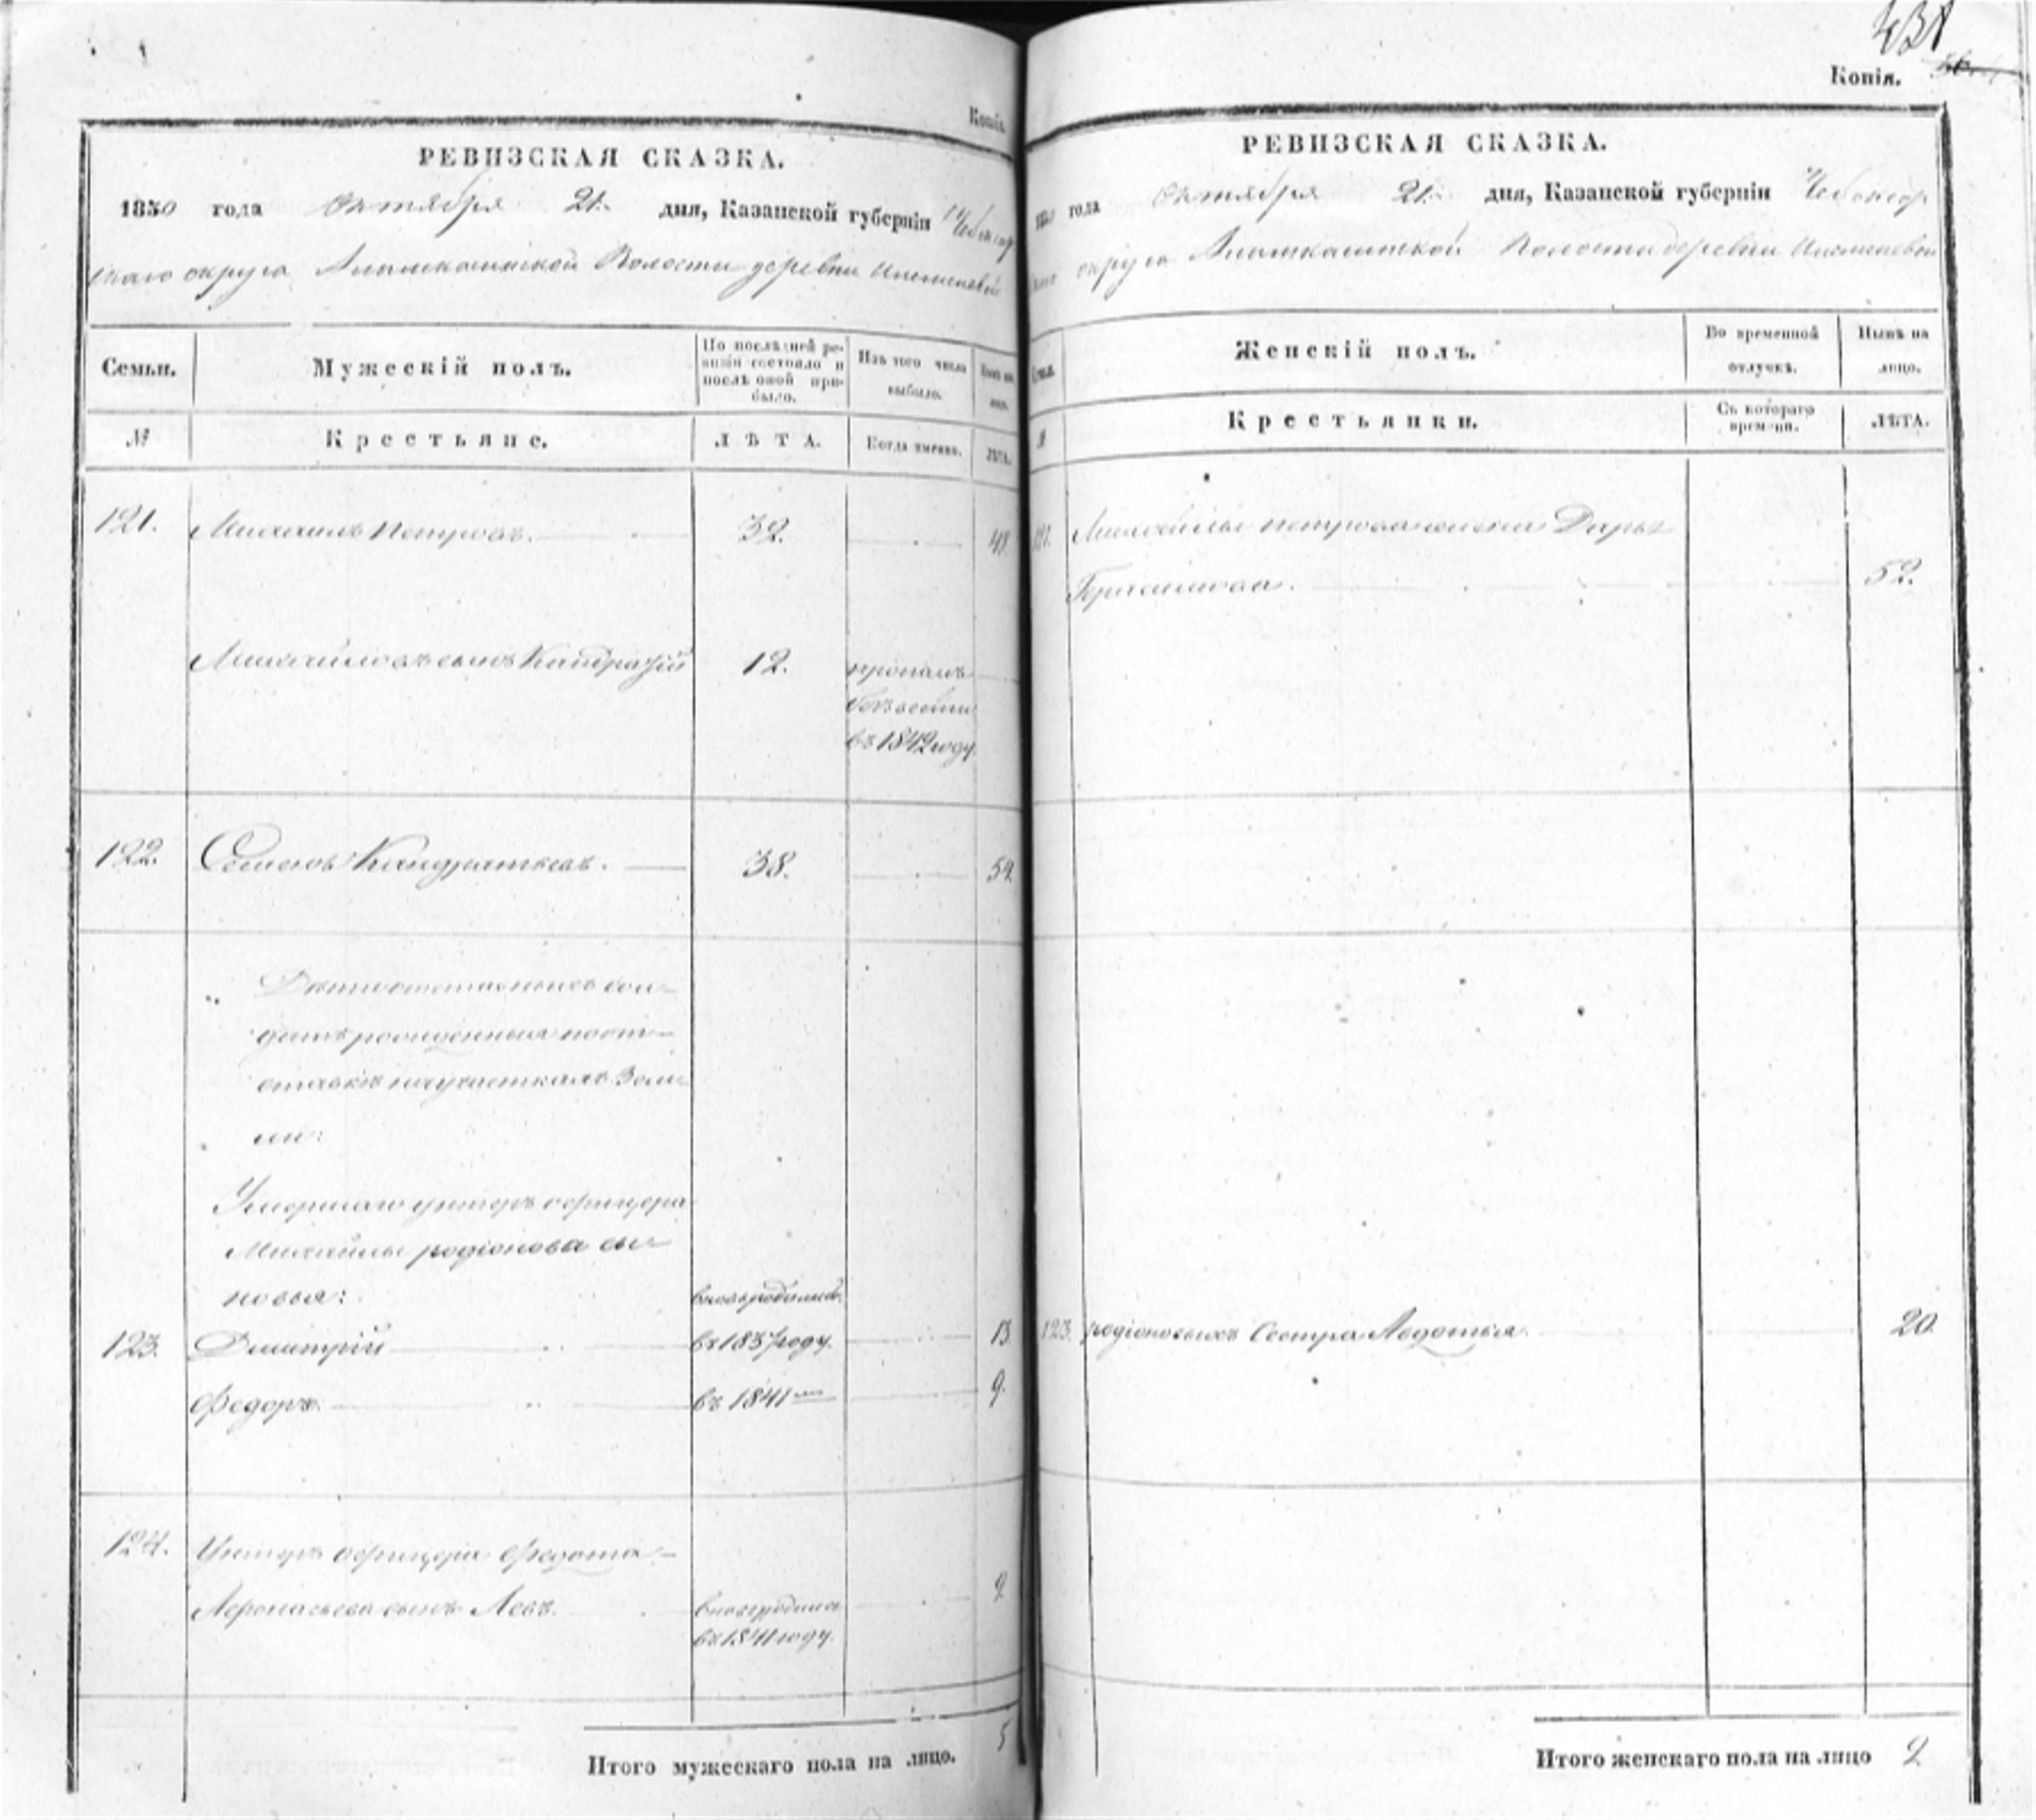 Копія.
РЕВИЗСКАЯ СКАЗКА.
1850 года Октября 21. дня, Казанской губерніи Чебоксар
скаго округа Волости деревни
Семьи.
Мужескій полъ.
По послѣдней ре-
визіи состояло и
послѣ оной при-
было.
Изъ того числа
выбыло.
Нынѣ на
лицо.
№
Крестьяне.
ЛѢТА.
Когда именно.
ЛѢТА.
121. Михаилъ Петровъ. 32. 48
Михайловъ сынъ Кандратій 12. пропалъ
безъ вести
въ 1842 году.
122. Семенъ Кандратьевъ. 38. 54.
Дѣти отставныхъ сол-
датъ рожденныя по от-
ставкѣ на участкахъ Земли
Умершаго унтеръ офицера
Михайлы родіонова сы-
новья: вновь родились
123. Дмитрій въ 1837 году. 13
Федоръ. въ 1841 мъ 9.
124. Унтеръ офицера Федота
Афонасьева сынъ Левъ. вновь родился 9
въ 1841 году.
Итого мужескаго пола на лицо. 5
431
Копія.
РЕВИЗСКАЯ СКАЗКА.
1850 года Октября 21. дня, Казанской губерніи Чебоксар
скаго округа Волости деревни
Семьи.
Женскій полъ.
Во временной
отлучкѣ.
Нынѣ на
лицо.
№
Крестьянки.
Съ котораго
времени.
ЛѢТА.
121. Михайлы петрова жена Дарья
52.
123. родіоновыхъ Сестра Авдотья. 20.
Итого женскаго пола на лицо 2